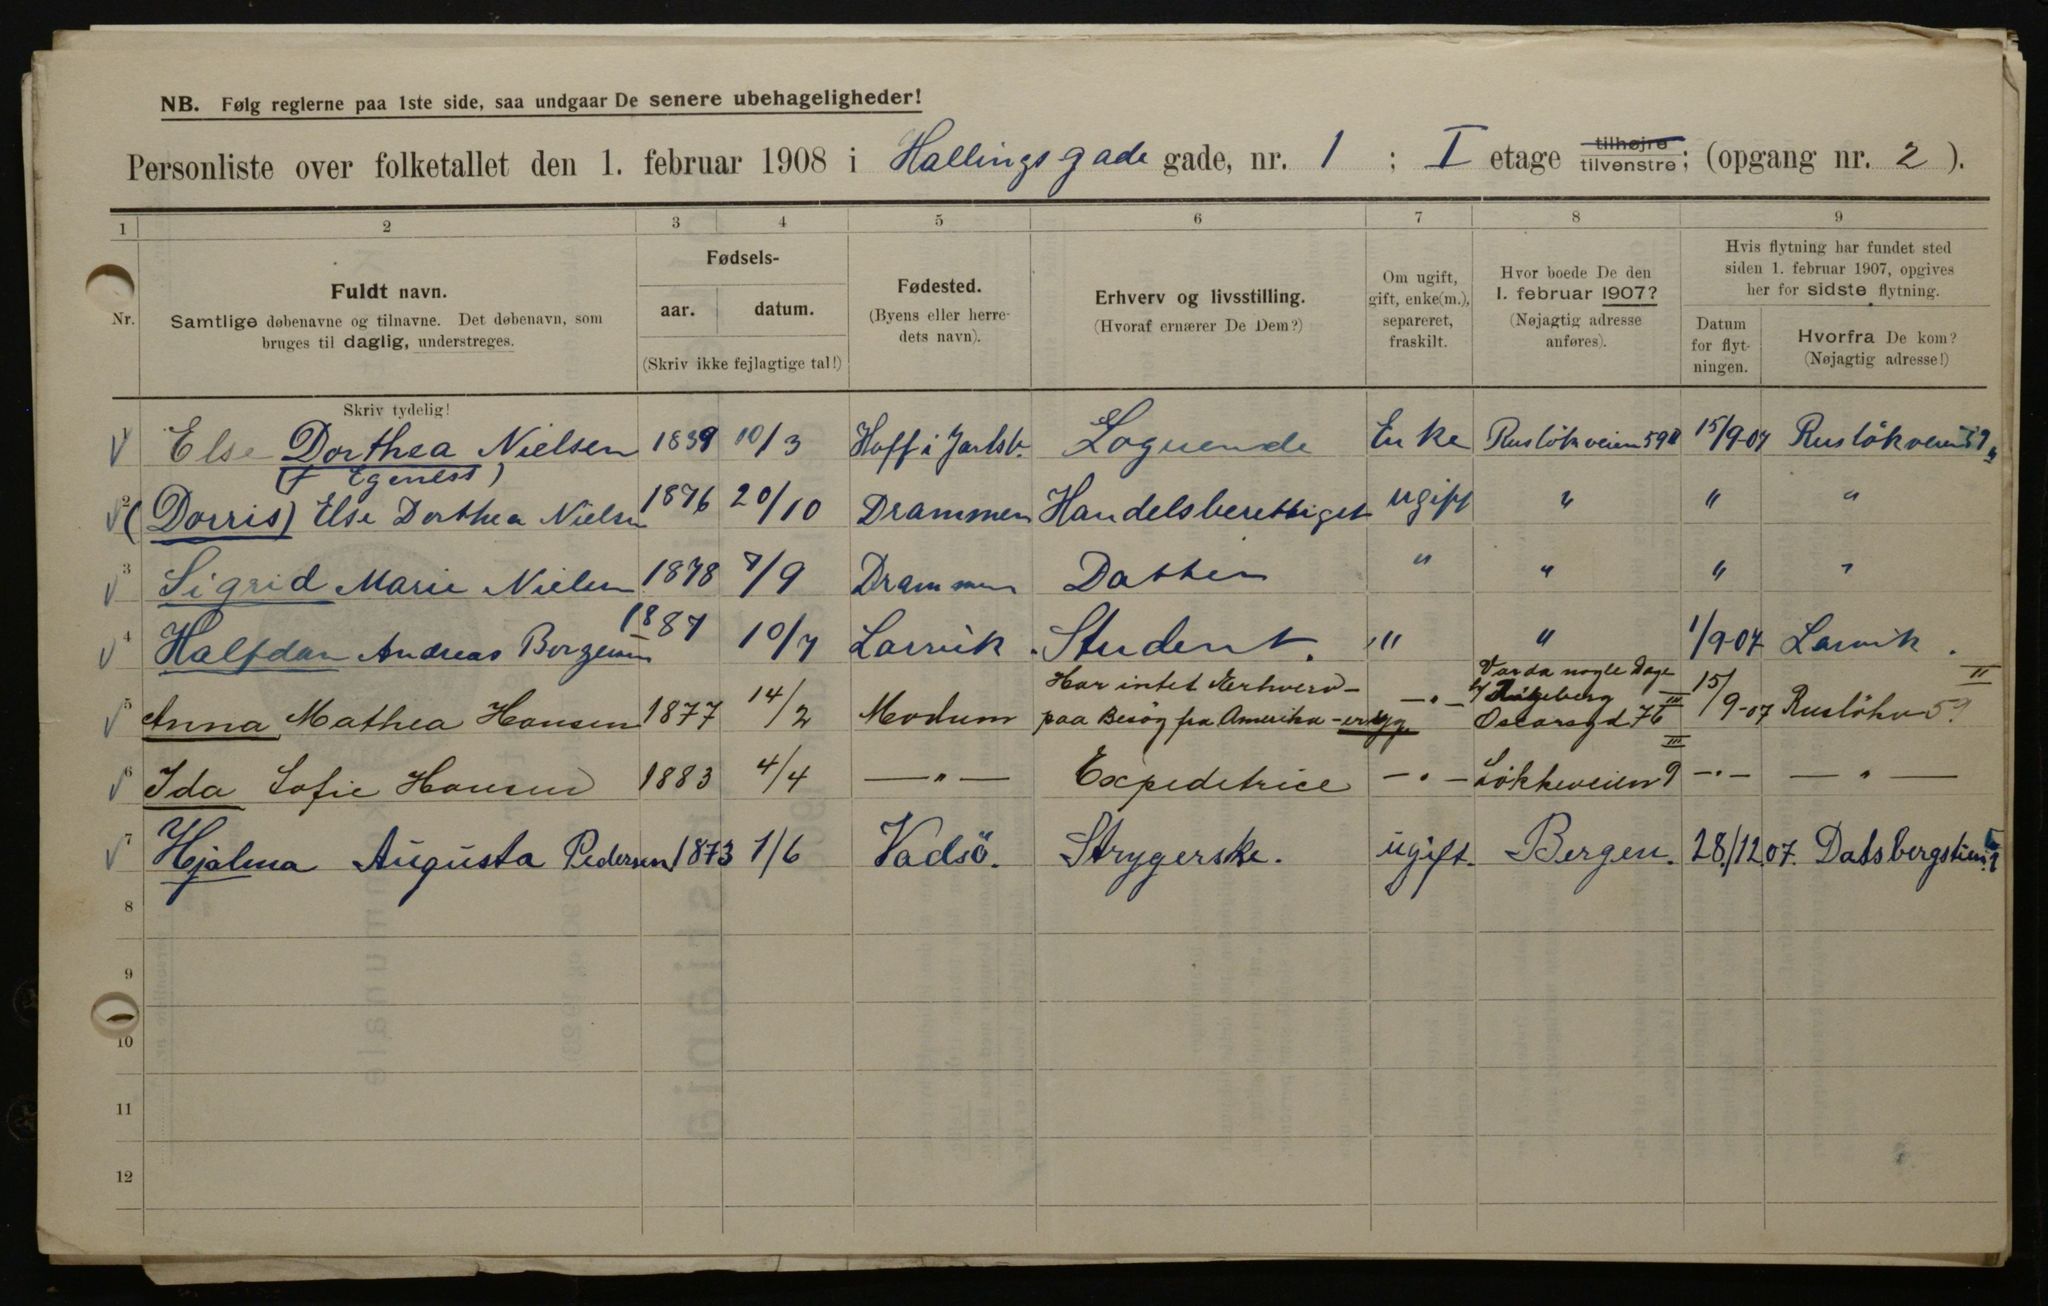 NB. Følg reglerne paa 1ste side, saa undgaar De senere ubehageligheder!
Personliste over folketallet den 1. februar 1908 i Hallingsgade gade, nr. 1 ; I etage tilhøjre tilvenstre; (opgang nr. 2 ).
1 2 3 4 5 6 7 8 9
Nr.
Fuldt navn.
Samtlige døbenavne og tilnavne. Det døbenavn, som
bruges til daglig, understreges.
Skriv tydelig!
Fødsels-
aar. datum.
(Skriv ikke fejlagtige tal!)
Fødested.
(Byens eller herre-
dets navn).
Erhverv og livsstilling.
(Hvoraf ernærer De Dem?)
Om ugift,
gift, enke(m.),
separeret,
fraskilt.
Hvor boede De den
1. februar 1907?
(Nøjagtig adresse
anføres).
Hvis flytning har fundet sted
siden 1. februar 1907, opgives
her for sidste flytning.
Datum
for flyt-
ningen.
Hvorfra De kom?
(Nøjagtig adresse!)
1 Else Dorthea Nielsen 1839 10/3 Hoff i Jarlsb. Loguende Enke Rusløkveien 59 II 15/9-07 Rusløkveien 59 II
(f Egeness)
2 (Dorris) Else Dorthea Nielsen 1876 20/10 Drammen Handelsberettiget ugift " " "
3 Sigrid Marie Nielsen 1878 8/9 Drammen Datter " " " "
4 Halfdan Andreas Borgersen 1887 10/7 Larvik Student. " " 1/9-07 Larvik.
5 Anna Mathea Hansen 1877 14/2 Modum Har intet Nerhverv - paa Besøg fra Amerika - er syg - " - Var da nogle Dage Oscarsgd 76 III 15/9-07 Rusløkv 59 II
6 Ida Sofie Hansen 1883 4/4 - " - Expeditrice - " - Løkkeveien 9 III - " - - " -
7 Hjalma Augusta Pedersen 1873 1/6 Vadsö. Strygerske. ugift. Bergen. 28./12 07.
8
9
10
11
12